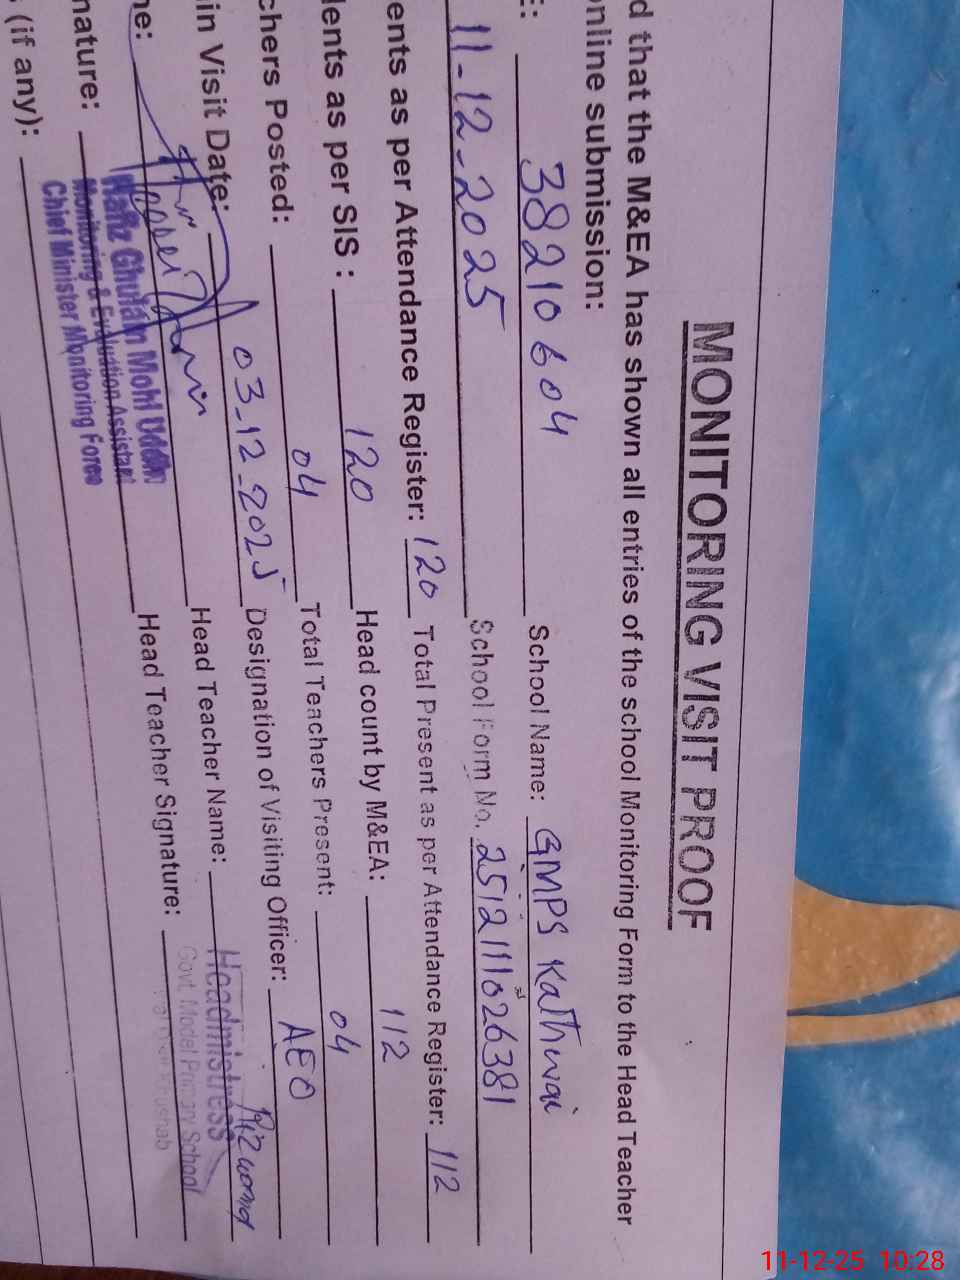 MONITORING VISIT PROOF
d that the M&EA has shown all entries of the school Monitoring Form to the Head Teacher
online submission:
E: 38210604 School Name: GMPS Kathwai
11-12-2025 School Form No. 2512111026381
ents as per Attendance Register: 120 Total Present as per Attendance Register: 112
dents as per SIS : 120 Head count by M&EA: 112
chers Posted: 04 Total Teachers Present: 04
in Visit Date: 03-12-2025 Designation of Visiting Officer: AEO
me: Head Teacher Name: Rizwana
nature: Head Teacher Signature:
Hafiz Ghulam Mohi Uddin
Monitoring & Evaluation Assistant
Chief Minister Monitoring Force
Headmistress
Govt. Model Primary School
Khushab
(if any):
11-12-25 10:28